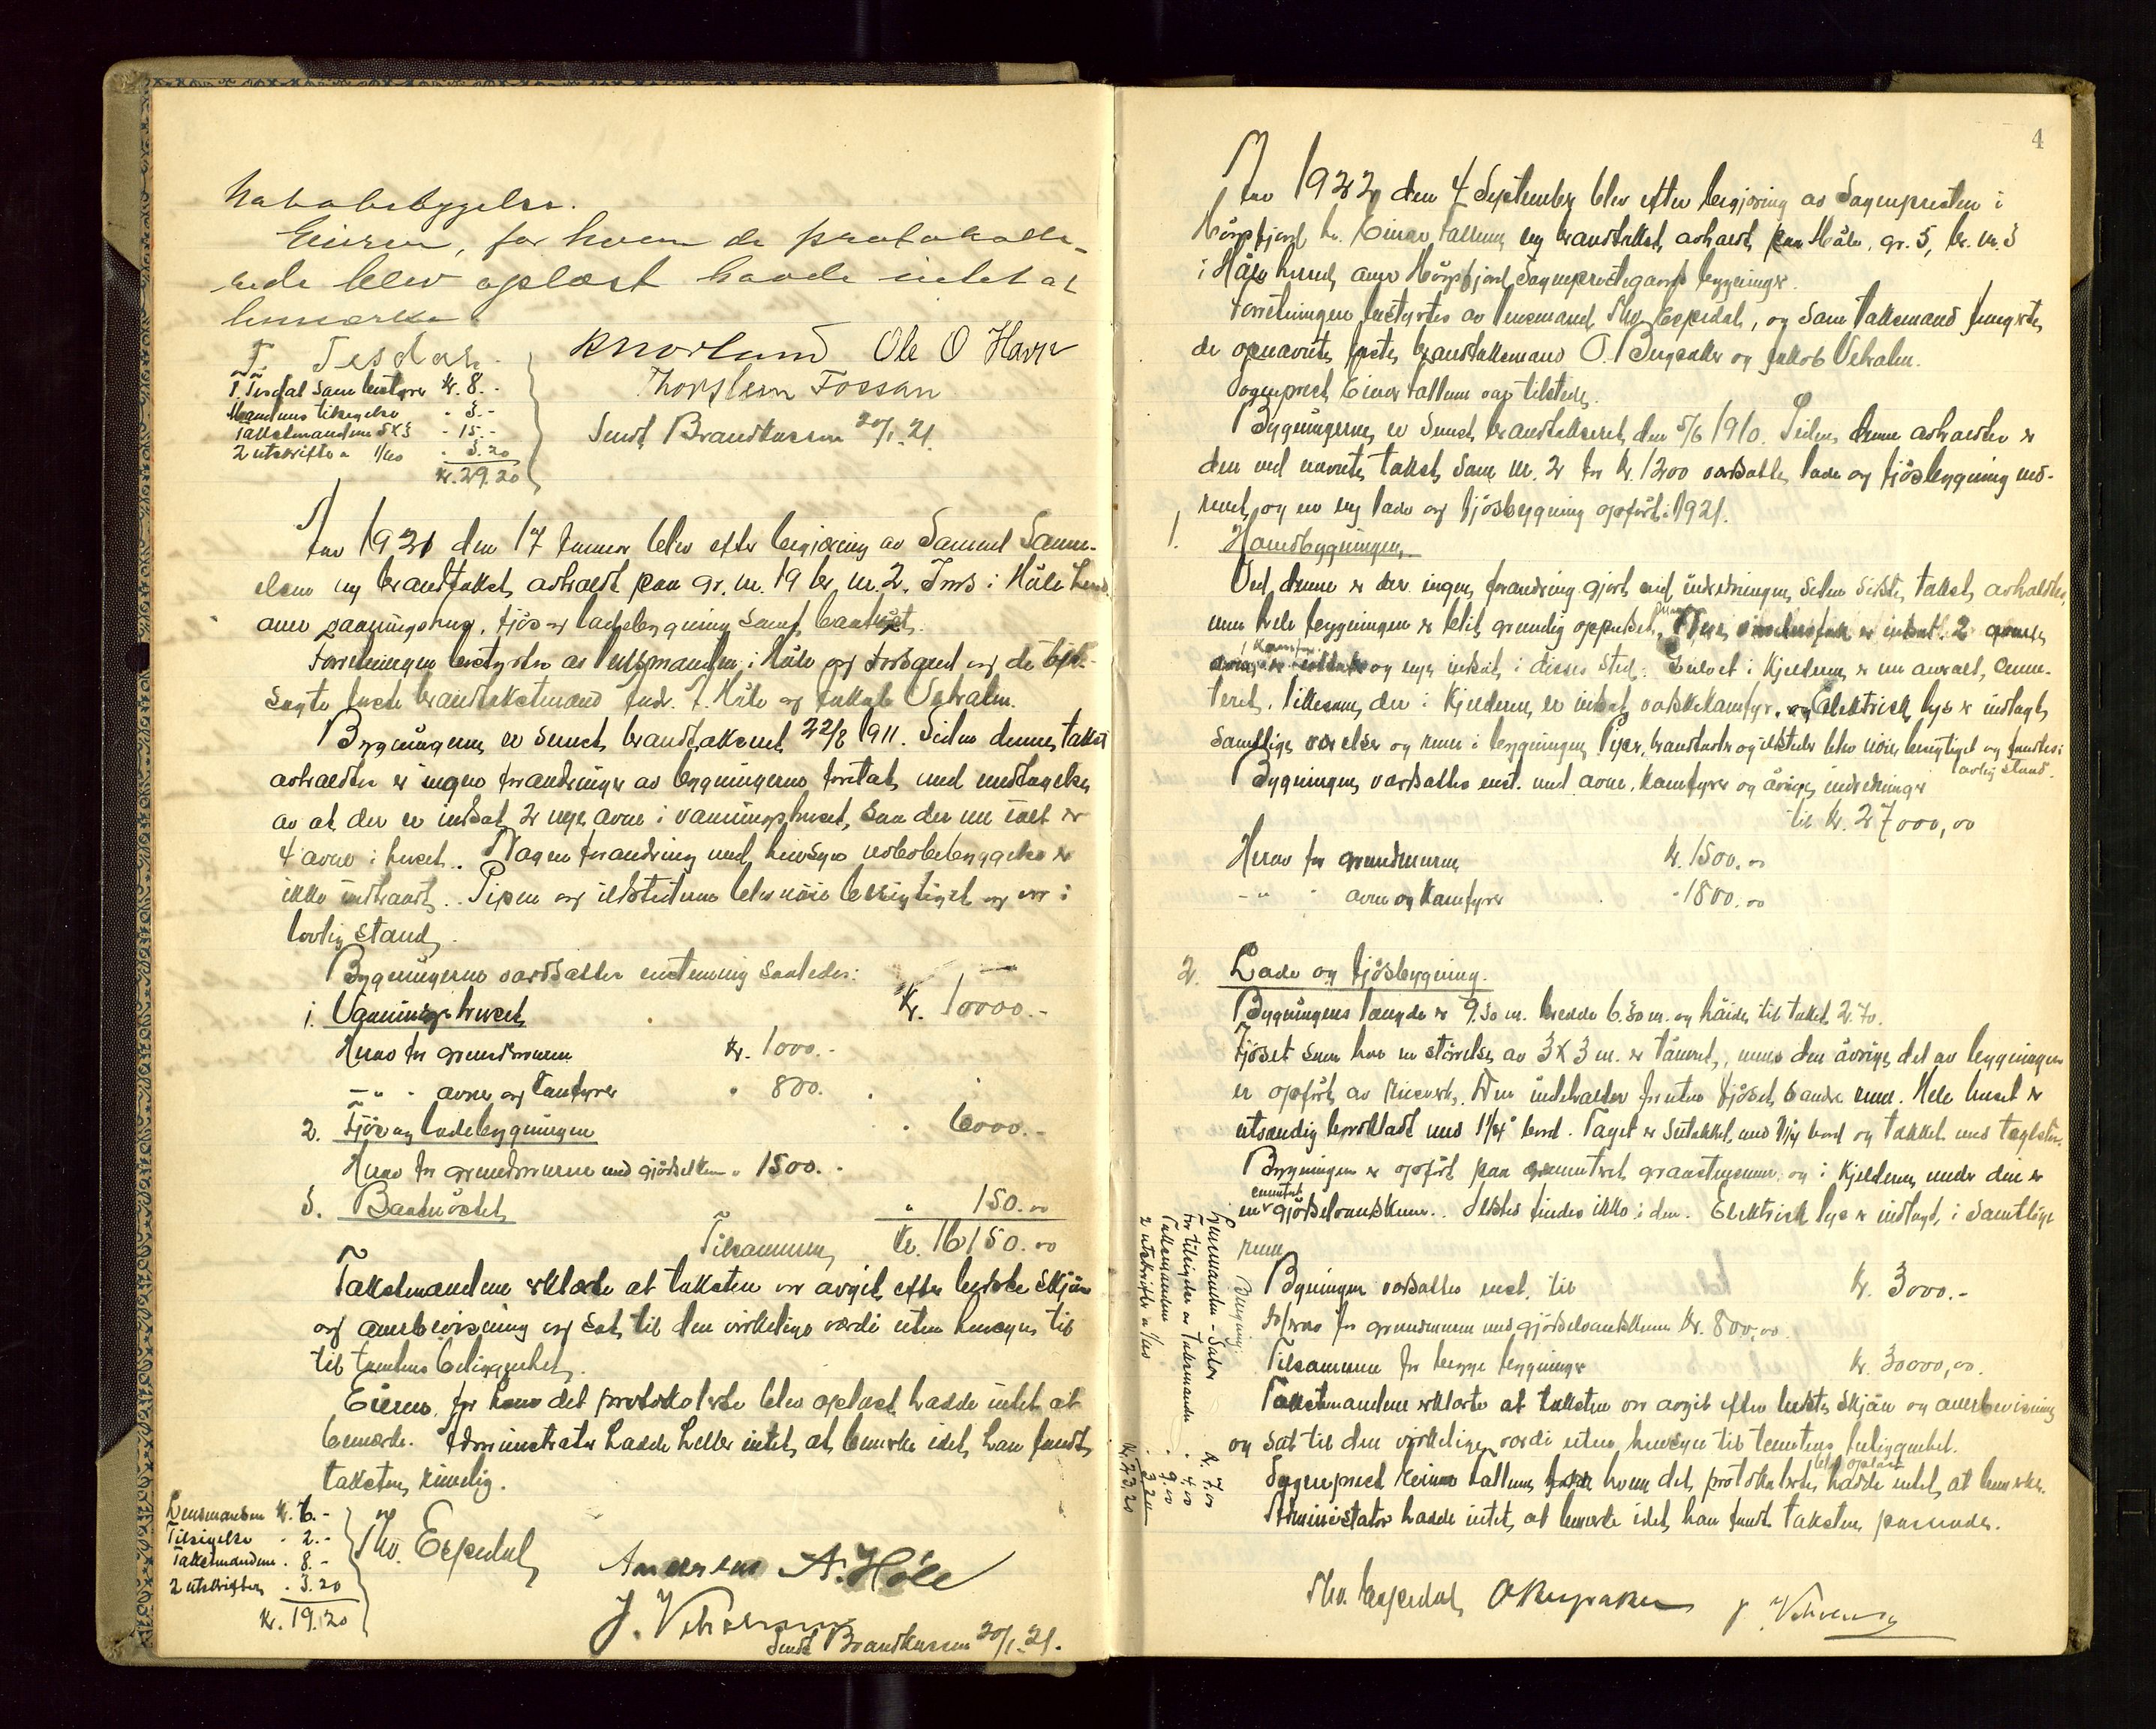 Nabobebyggelse.
Eieren, for hvem de protokolle-
rede blev oplæst havde intet at
bemærke.
T. Tisdal.
K Norlund Ole O Havn
Thorstein Fossan
Sendt Brandkassen 20/1-21.
T. Tisdal som bestyrer kr. 8.-
Mændenes tilsigelse " 3.-
Takstmændene 5x3 - 15.-
2 utskrifter a 1/60 " 3.20
Kr. 29.20
Aar 1921 den 17 Januar blev efter begjæring av Samuel Samu-
elsen ny brandtakst avholdt paa gr. nr. 19 br. nr. 2, Ims i Høle herred
over vaaningshus, fjøs og ladebygning samt baatnøst.
Forretningen bestyrtes av lensmanden i Høle og Forsand og de opn.
faste brandtakstmænd Andr. A. Høle og Jakob Vetrhus.
Bygningerne er senest brandtaksert 22/8 1911. Siden denne takst
avholdtes er ingen forandringer av bygningerne foretat med undtagelse
av at der er indsat 2 nye ovne i vaaningshuset, saa der nu ialt er
4 ovne i huset. Nogen forandring med hensyn nabobebyggelse er
ikke indtraadt. Pipen og ildstederne blev nøie besigtiget og var i
lovlig stand.
Bygningerne værdsattes enstemmig saaledes:
1. Vaaningshuset Kr. 10000.-
Herav for grundmuren Kr. 1000.-
- " - ovner og komfyrer " 800.
2. Fjøs og ladebygningen " 6000.-
Herav for grundmurene med gjødselkum " 1500.-
3. Baatnøstet " 150.00
Tilsammen Kr. 16150.00
Takstmændene erklærte at taksten var avgit efter bedste skjøn
og overbevisning og sat til den virkelige værdi uten hensyn til
til tomtens beliggenhet.
Eieren, for hvem det protokolerte blev oplæst hadde intet at
bemerke. Administrator hadde heller intet at bemerke idet han fandt
taksten rimelig.
Lensmanden kr. 6.-
Tilsigelse " 2.-
Takstmændene " 8.-
2 utskrifter " 3.20
Kr. 19.20
Tho. Espedal
Andreas A. Høle
Sendt Brandkassen 20/1-21.
4
Aar 1922 den 4 September blev efter begjæring av Sognepresten i
Høgsfjord hr. Einar Tallum ny brandtakst avholdt paa Høle, gr. 5, br. nr. 3
i Høle herred, over Høgsfjord Sogneprestegaards bygninger.
Forretningen bestyrtes av lensmand Tho. Espedal, og som takstmænd fungerte
de opnævnte faste brandtakstmænd O. Bergsaker og Jakob Vetrhus.
Sogneprest Einar Tallum var tilstede.
Bygningerne er senest brandtaksert den 5/6 1910. Siden denne avholdtes er
den ved nævnte takst som nr. 2 for kr. 1200 værdsatte lade og fjøsbygning ned-
revet, og en ny lade og fjøsbygning opført i 1921.
1. Hovedbygningen
Ved denne er der ingen forandring gjort med indredningen siden sidste takst avholdtes,
men hele bygningen er blit grundig oppusset. 2 gamle
og nye indsat i disses sted. Gulvet i kjelderen er nu overalt cemen-
teret. Likesom der i kjelderen er indsat vaskekomfyr. Elektrisk lys er indlagt i
samtlige værelser og rum i bygningen. Piper, brandmure og ildsteder blev nøie besigtiget og fandtes i
lovlig stand.
Bygningen værdsattes enst. med ovne, komfyrer og øvrige indredninger
til kr. 27000,00
Herav for grundmuren kr. 1500.00
- " - ovne og komfyrer " 1800.00
2. Lade og fjøsbygning.
Bygningens længde er 9.30 m. bredde 6.30 m. og høide til taket 2.70.
Fjøset som har en størrelse av 3x3 m. er tømret, mens den øvrige del av bygningen
er opført av reisverk. Den indeholder foruten fjøset 6 andre rum. Hele huset er
utvendig bordklædt med 1 1/4" bord. Taget er sutakket med 3/4 bord og tækket med taglsten.
Bygningen er opført paa cementeret graastensmur og i kjelderen under den er
en cementert gjødselvandskum. Ildsted findes ikke i den. Elektrisk lys er indlagt i samtlige
rum.
Bygningen værdsattes enst. til Kr. 3000.-
Herav for grundmuren med gjødselvandskum kr. 800.00.
Tilsammen for begge bygninger kr. 30000,00.
Takstmændene erklærte at taksten var avgit efter bedste skjøn og overbevisning
og sat til den virkelige værdi uten hensyn til tomtens beliggenhet.
Sogneprest Einar Tallum for hvem det protokolerte blev oplæst hadde intet at bemerke.
Administrator hadde intet at bemerke idet han fandt taksten passende.
Tho. Espedal O Bergsaker J. Vetrhus
Beregning:
Lensmanden - Salær kr. 7.00
For tilsigelse av takstmænder " 4.00
Takstmændene " 9.00
2 utskrifter a 1/60 " 3.20
Kr. 23,20